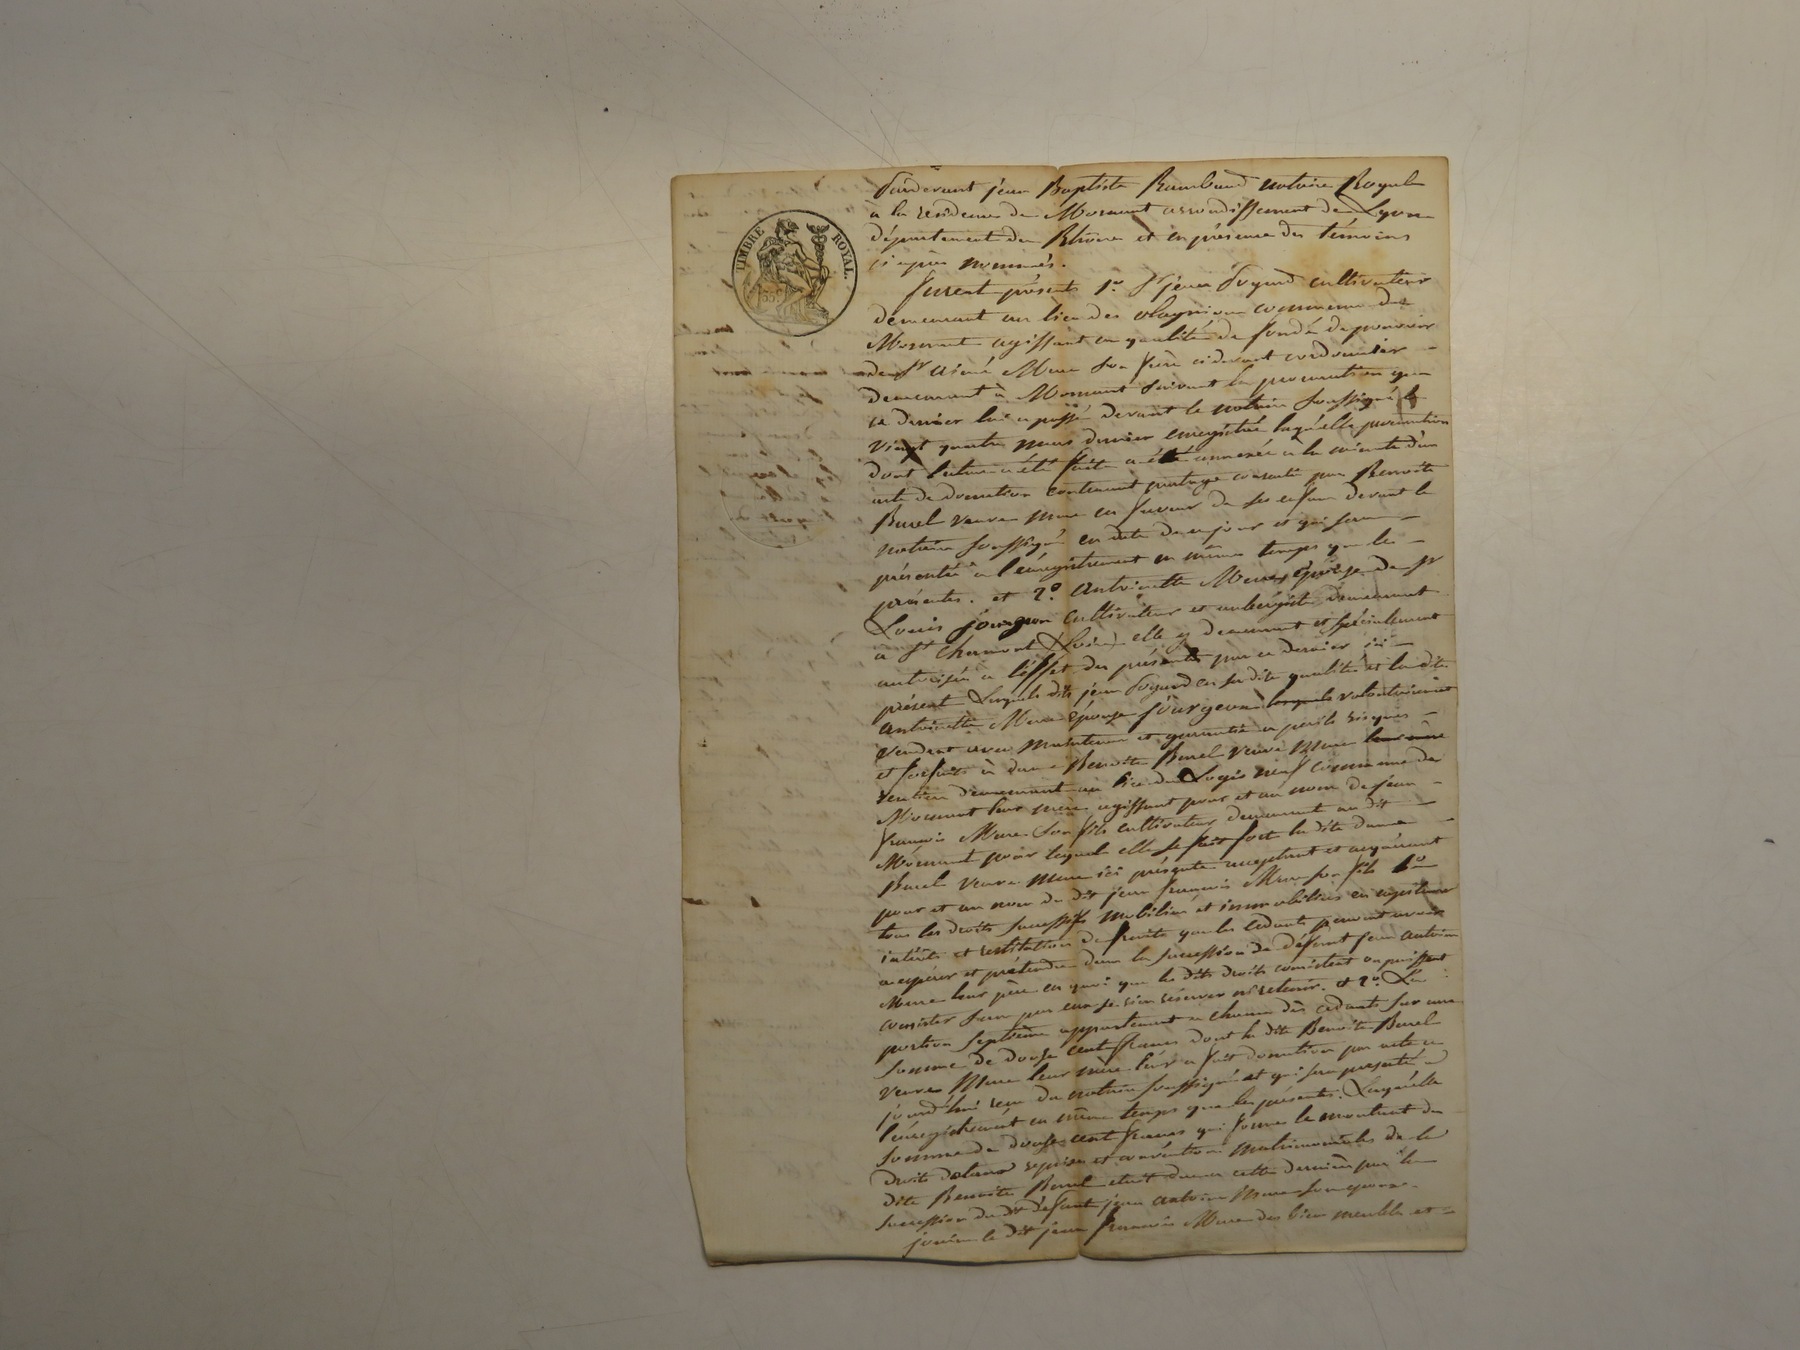 TIMBRE ROYAL.
35c
Pardevant jean Baptiste Rambaud notaire Royal
à la residence de Mornant arrondissement de Lyon
département du Rhône et en présence des témoins
ci après nommés.
furent présents 1º. Sr jean Goyard cultivateur
demeurant au lieu des commune de
Mornant agissant en qualité de fondé de pouvoir
de Sr Aimé Mure son frère cidevant cordonnier
demeurant à Mornant suivant la procuration que
ce dernier lui a passé devant le notaire soussigné le
vingt quatre mars dernier enregistrée laquelle procuration
dont lecture a été faite a été annexée à la minute d'un
acte de donation contenant partage consenti par Benoite
Burel veuve Mure en faveur de ses enfans devant le
notaire soussigné en date de ce jour et qui sera
présenté à l'enregistrement en même temps que les
présentes. et 2º. Antoinette Mure épouse de Sr
Louis jourgeon cultivateur et aubergiste demeurant
à St Chamond (Loire) elle y demeurant et spécialement
autorisée à l'effet des présentes par ce dernier ici
présent Lesquels dits jean Goyard en sa dite qualité et la dite
Antoinette Mure épouse jourgeon volontairement
vendent avec maintenue et garantie à perils risques
et forfaits à dame Benoite Burel veuve Mure leur mère
rentière demeurant au lieu du Logis neuf commune de
Mornant leur mère agissant pour et au nom de jean
françois Mure son fils cultivateur demeurant au dit
Mornant pour lequel elle se fait fort la dite dame
Burel veuve Mure ici présente acceptant et acquérant
pour et au nom du dit jean françois Mure son fils 1º
tous les droits successifs mobiliers et immobiliers en capitaux
intérêts et restitution de fruits que les cédants peuvent avoir
à espérer et prétendre dans la succession de défunt jean Antoine
Mure leur père en quoi que les dits droits consistent ou puissent
consister sans par eux se rien réserver ni retenir. et 2º. La
portion septième appartenant à chacun des cédants sur une
somme de douze cent francs dont la dite Benoite Burel
veuve Mure leur mère leur a fait donation par acte ce
jourd'hui reçu du notaire soussigné et qui sera présenté à
l'enregistrement en même temps que les présentes. Laquelle
somme de douze cent francs qui forme le montant des
droits dotaux reprises et conventions matrimoniales de la
dite Benoite Burel etait due à cette dernière par la
succession du dit défunt jean antoine Mure son époux.
jouira le dit jean françois Mure des biens meubles et